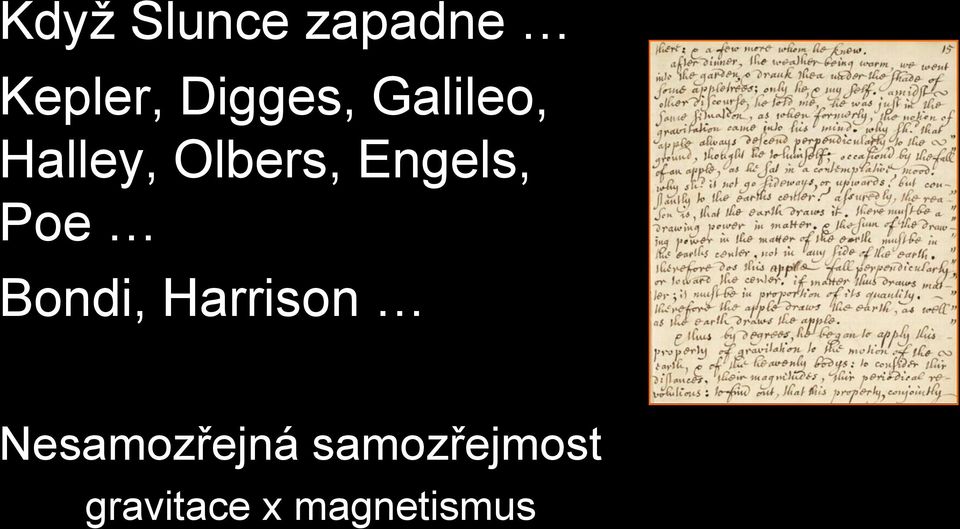 Když Slunce zapadne …
Kepler, Digges, Galileo,
Halley, Olbers, Engels,
Poe …
Bondi, Harrison …
Nesamozřejná samozřejmost
gravitace x magnetismus
there: & a few more whom he knew. 15
after dinner, the weather being warm, we went
into the garden, & drank thea under the shade of
some appletrees; only he, & my self. amidst
other discourse, he told me, he was just in the
same situation, as when formerly, the notion of
gravitation came into his mind. why sh.d that
apple always descend perpendicularly to the
ground, thought he to himself: occasion'd by the fall
of an apple, as he sat in a contemplative mood.
why sh.d it not go sideways, or upwards? but con-
stantly to the earths center? assuredly, the rea-
son is, that the earth draws it. there must be a
drawing power in matter. & the sum of the draw-
ing power in the matter of the earth must be in
the earths center, not in any side of the earth.
therefore dos this apple fall perpendicularly
or toward the center. if matter thus draws mat-
ter; it must be in proportion of its quantity.
therefore the apple draws the earth, as well
as the earth draws the apple.
& thus by degrees, he began to apply this
property of gravitation to the motion of the
earth, & of the heavenly bodys: to consider thir
distances, their magnitudes, thir periodical re-
volutions: to find out, that this property, conjointly